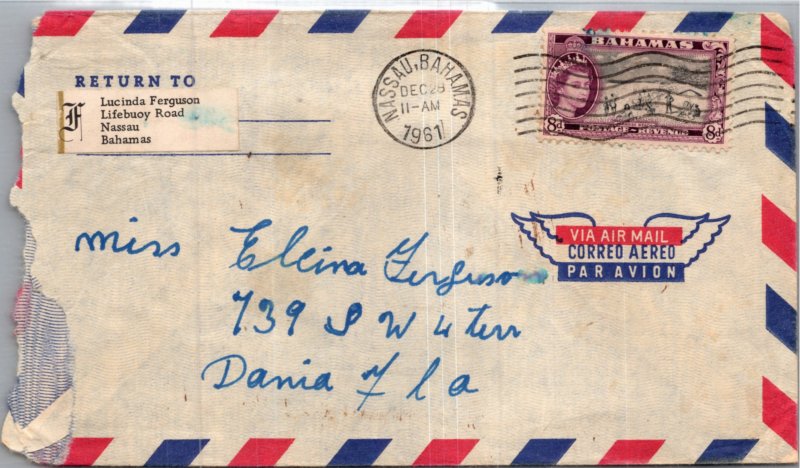 RETURN TO
F
Lucinda Ferguson
Lifebuoy Road
Nassau
Bahamas
NASSAU, BAHAMAS
DEC 28
11-AM
1961
BAHAMAS
8d
POSTAGE - REVENUE
8d
VIA AIR MAIL
CORREO AEREO
PAR AVION
miss Elcina Ferguson
739 S W 4 terr
Dania Fla